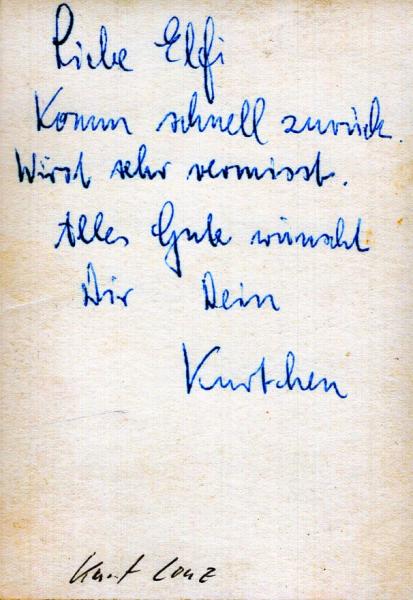 Liebe Elfi
Komm schnell zurück.
Wirst sehr vermisst.
Alles Gute wünscht
Dir Dein
Kurtchen
Kurt